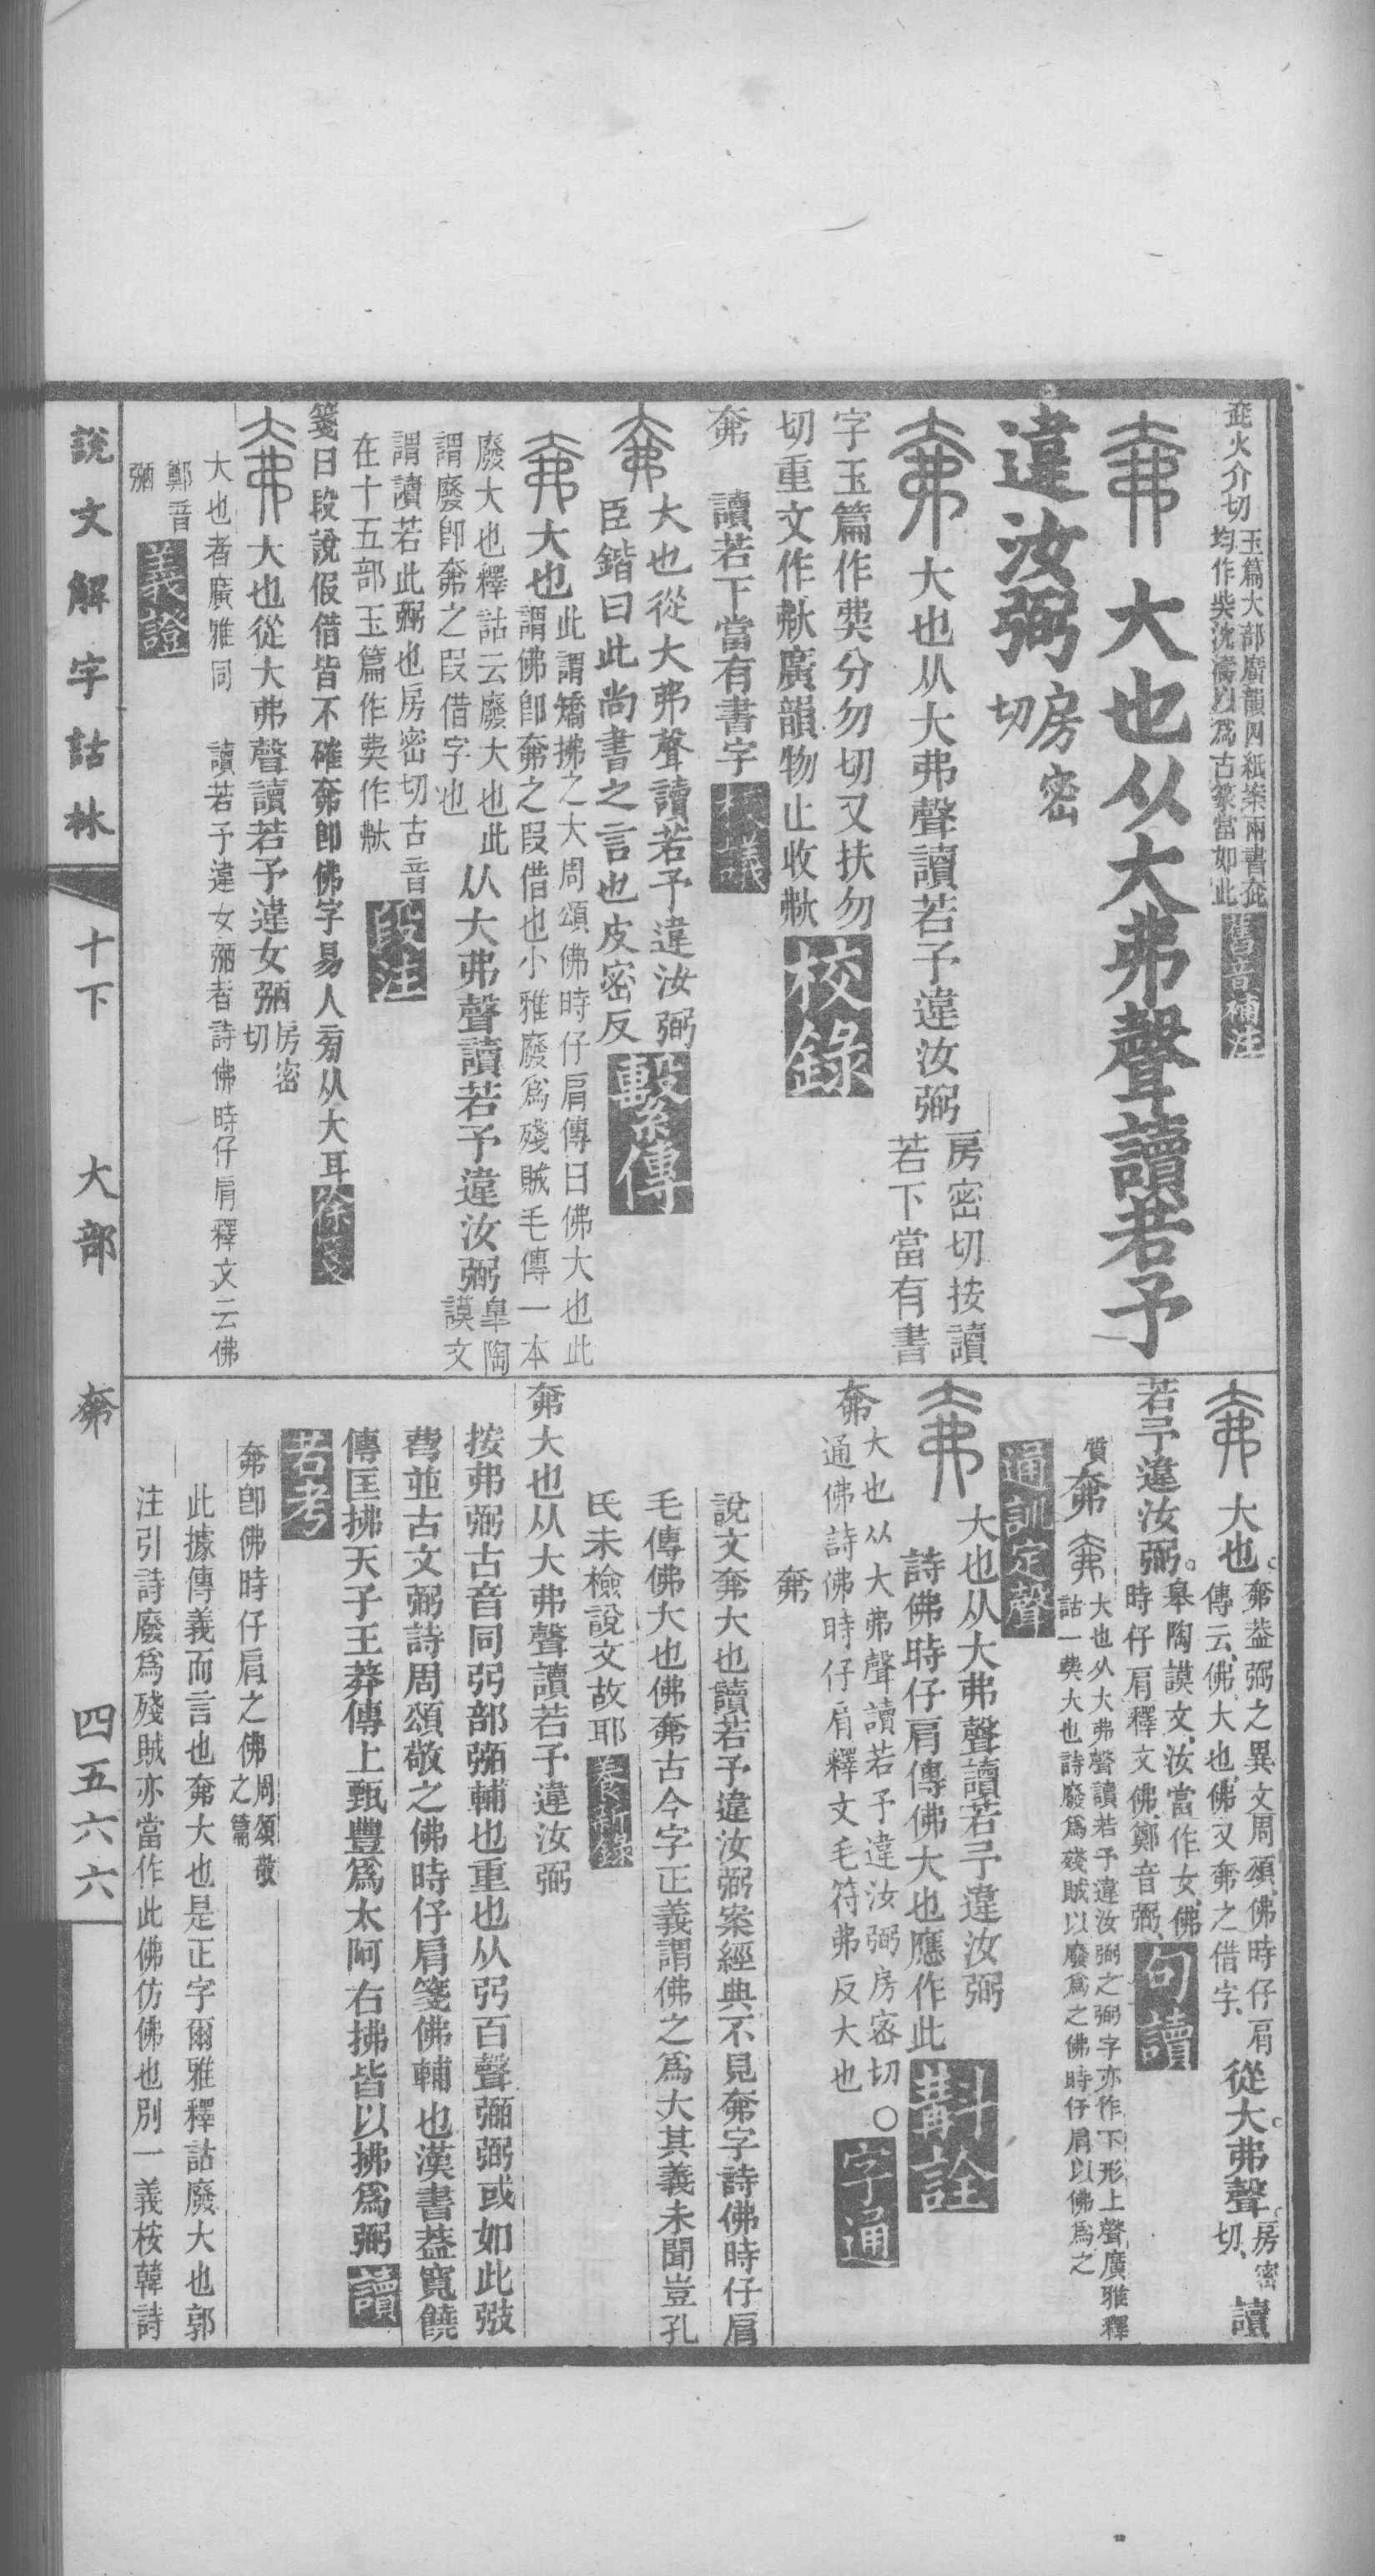 𡘩火介切玉篇大部廣韻四紙㭰雨書𡘩
均作柴沈濤以爲古篆當如此 舊音補注
大也从大弗聲讀若予
違汝弼房密切
大也从大弗聲讀若予違汝弼房密切按讀若下當有書
字玉篇作𡙇分勿切又扶勿
切重文作㚕廣韻物止收㚕 校錄
㚕 讀若下當有書字 校議
大也從大弗聲讀若予違汝弼
臣鍇曰此尚書之言也皮密反 繫傳
大也此謂矯拂之大周頌佛時仔肩傳曰佛大也此
謂佛卽㚕之叚借也小雅廢爲殘賊毛傳一本
廢大也釋詁云廢大也此
謂廢卽㚕之叚借字也
从大弗聲讀若予違汝弼皐陶謨文
謂讀若此弼也房密切古音
在十五部玉篇作𡙇作㚕 段注
箋曰段說假借皆不確㚕卽佛字易人㫄从大耳 徐箋
大也從大弗聲讀若予違女弻房密切
大也者廣雅同 讀若予違女弻者詩佛時仔肩釋文云佛
鄭音弻 義證
大也㚕蓋弼之異文周頌佛時仔肩
傳云佛大也佛又㚕之借字
從大弗聲房密切讀
若予違汝弼皋陶謨文汝當作女佛
時仔肩釋文佛鄭音弼 句讀
質㚕 大也从大弗聲讀若予違汝弼之弼字亦作下形上聲廣雅釋
詁一𡙇大也詩廢爲殘賊以廢爲之佛時仔肩以佛爲之
通訓定聲
大也从大弗聲讀若予違汝弼
詩佛時仔肩傳佛大也應作此 斠詮
㚕大也从大弗聲讀若予違汝弼房密切○
通佛詩佛時仔肩釋文毛符弗反大也 字通
㚕
說文㚕大也讀若予違汝弼案經典不見㚕字詩佛時仔肩
毛傳佛大也佛㚕古今字正義謂佛之爲大其義未聞豈孔
氏未檢說文故耶 養新錄
㚕大也从大弗聲讀若予違汝弼
按弗弼古音同弜部弻輔也重也从弜百聲彌弼或如此𢐀
𢏻並古文弼詩周頌敬之佛時仔肩箋佛輔也漢書蓋寬饒
傳匡拂天子王莽傳上甄豐爲太阿右拂皆以拂爲弼 讀
若考
㚕卽佛時仔肩之佛周頌敬之篇
此據傳義而言也㚕大也是正字爾雅釋詁廢大也郭
注引詩廢爲殘賊亦當作此佛仿佛也別一義桉韓詩
說文解字詁林 十下 大部 㚕 四五六六